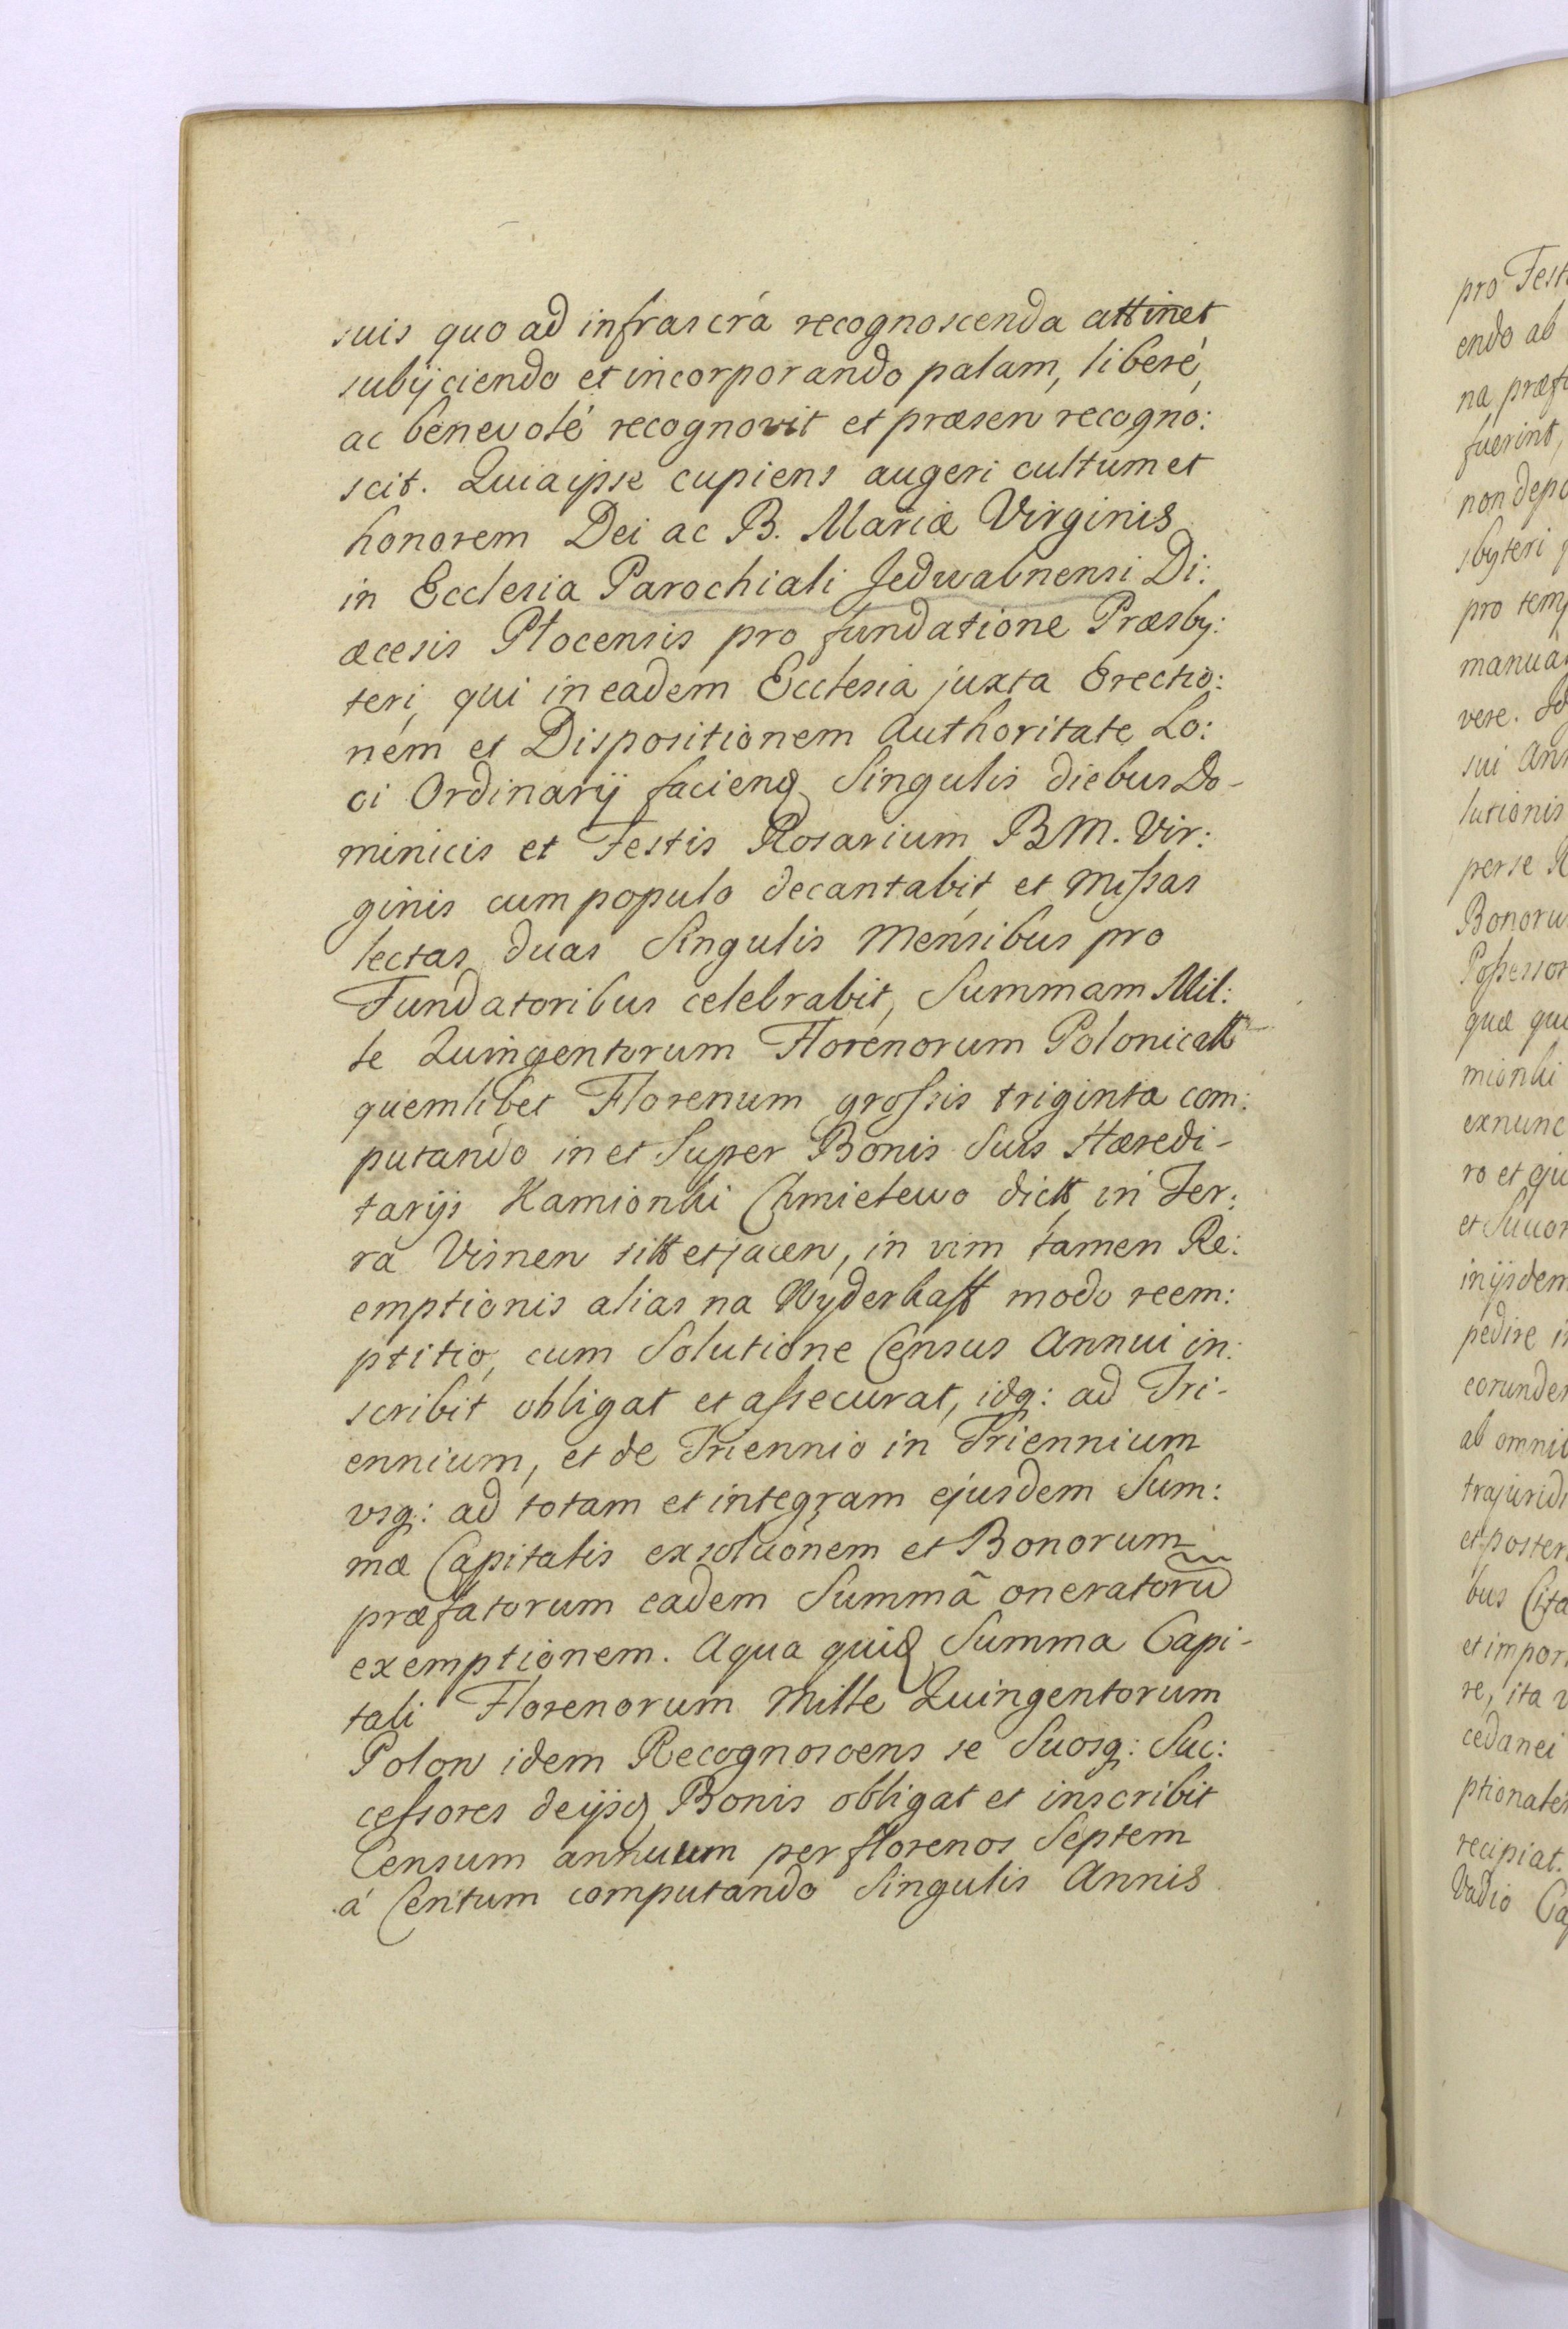 suis quo ad infrascrá recognoscenda attinet
subijciendo et incorporando palam, liberé,
ac benevolé recognovit et præsen recogno:
scit. Quia ipse cupiens augeri cultum et
honorem Dei ac B. Mariæ Virginis
in Ecclesia Parochiali Jedwabnensi Di:
æcesis Plocensis pro fundatione Præsby:
teri, qui in eadem Ecclesia juxta Erectio:
nem et Dispositionem Authoritate Lo:
ci Ordinarij faciend Singulis diebus Do-
minicis et Festis Rosarium BM. Vir:
ginis cum populo decantabit et Missas
lectas duas Singulis Mensibus pro
Fundatoribus celebrabit, Summam Mil:
le Quingentorum Florenorum Polonicall
quemlibet Florenum grossis triginta com:
putando in et Super Bonis Suis Hæredi-
tarijs Kamionki Chmielewo dictt in Ter:
ra Visnen sitt et jacen, in vim tamen Re:
emptionis alias na Wyderkaff modo reem:
ptitio, cum Solutione Census Annui in:
scribit obligat et assecurat, idq: ad Tri-
ennium, et de Triennio in Triennium
vsq: ad totam et integram ejusdem Sum:
mæ Capitalis exsoluónem et Bonorum
præfatorum eadem Summâ oneratorũ
exemptionem. A qua quid Summa Capi-
tali Florenorum Mille Quingentorum
Polon idem Recognoscens se Suosq: Suc:
cessores de ijsd Bonis obligat et inscribit
Censum annuum per florenos Septem
á Centum computando Singulis Annis
pro Fest
endo ab
na præf
fuerint,
non depo
sbyteri
pro temp
manua
vere.
sui Ann
lutionis
per se R
Bonoru
Possessor
quæ qu
mionki
exnunc
ro et eju
et Succo
in ijsdem
pedire i
eorunde
ab omni
trajuridi
et poster
bus Cita
et impor
re, ita
cedanei
ptionate
recipiat.
Vadio Ca